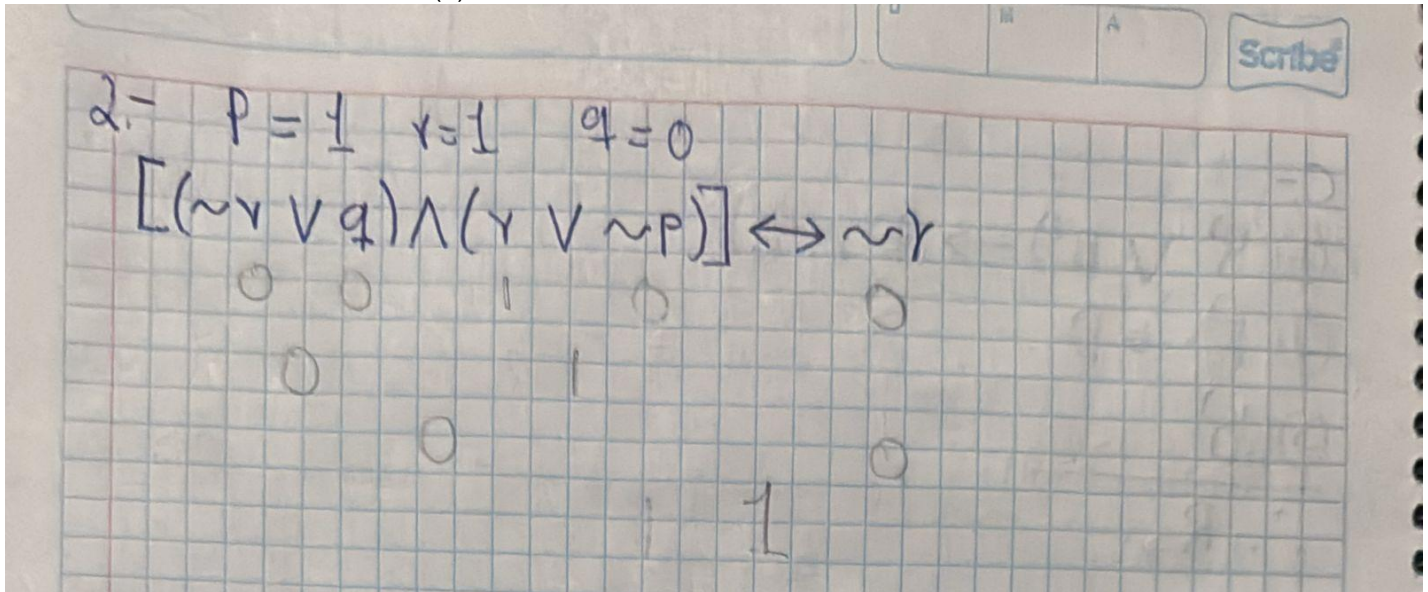 M A
Scribe
2.- p = 1 r = 1 q = 0
[(~r ∨ q) ∧ (r ∨ ~p)] ↔ ~r
0 0 1 0 0
0 1
0 0
1